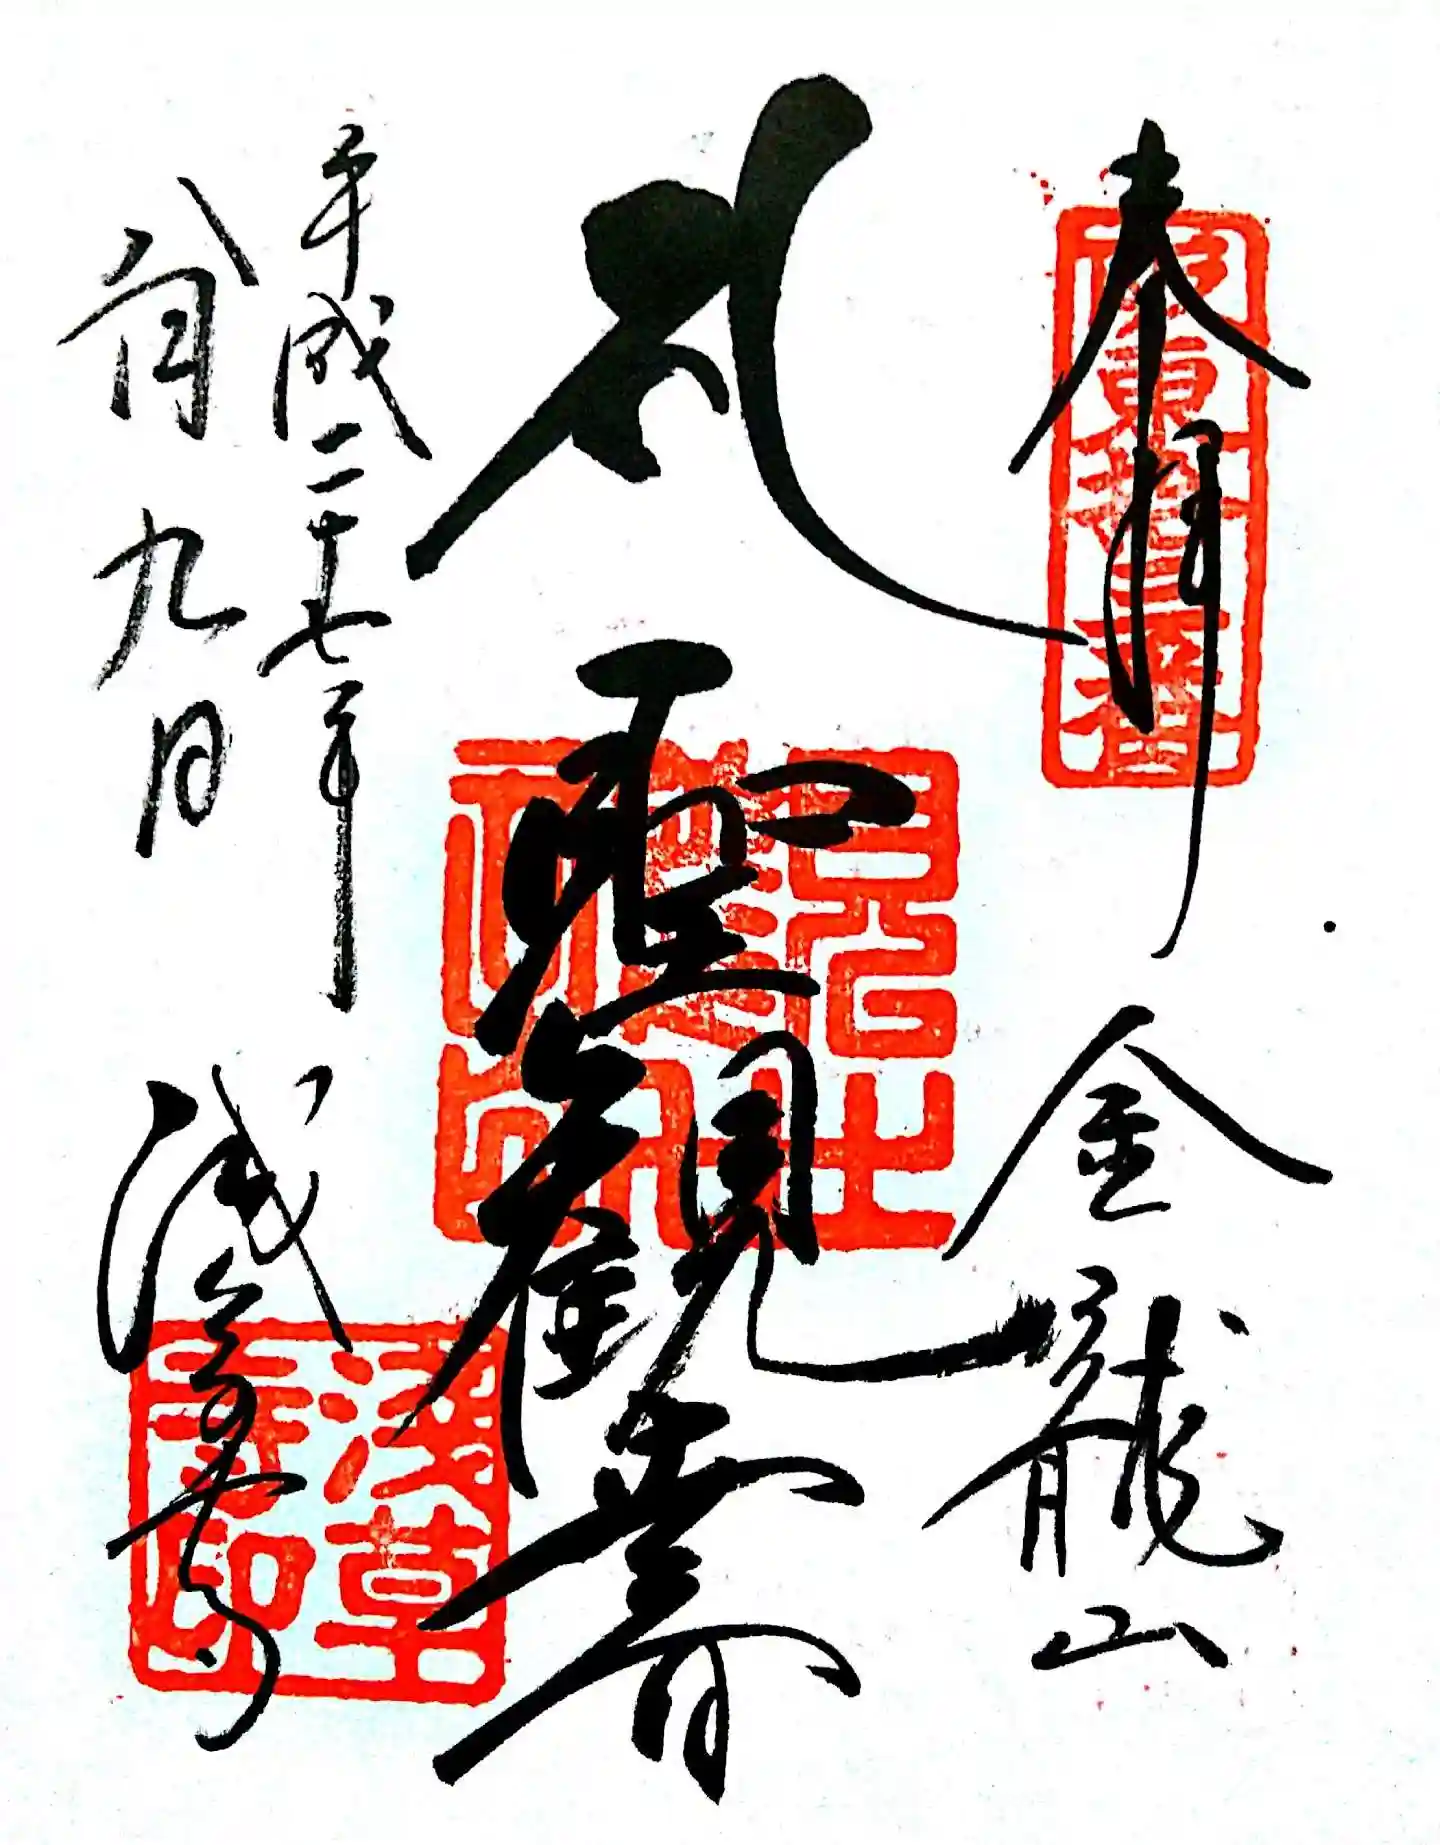 奉拝 金龍山
坂東拾三番
聖觀世音
平成二十七年
八月九日
浅草寺
淺草
寺印